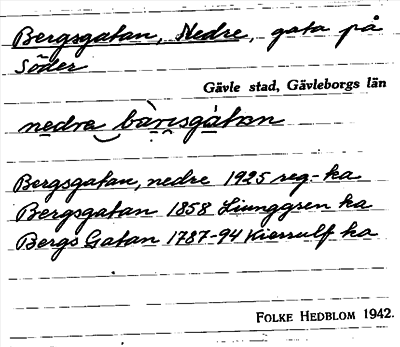 Bergsgatan, Nedre, gata på
Söder
Gävle stad, Gävleborgs län
nedra bàrisgátan
Bergsgatan, nedre 1925 reg-ka
Bergsgatan 1858 Ljunggren ka
Bergs Gatan 1787-94 Kierrulf ka
FOLKE HEDBLOM 1942.